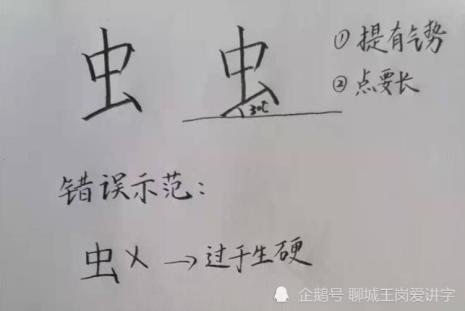 虫 虫 ①提有气势
30° ②点要长
错误示范：
虫 × → 过于生硬
企鹅号 聊城王岗爱讲字